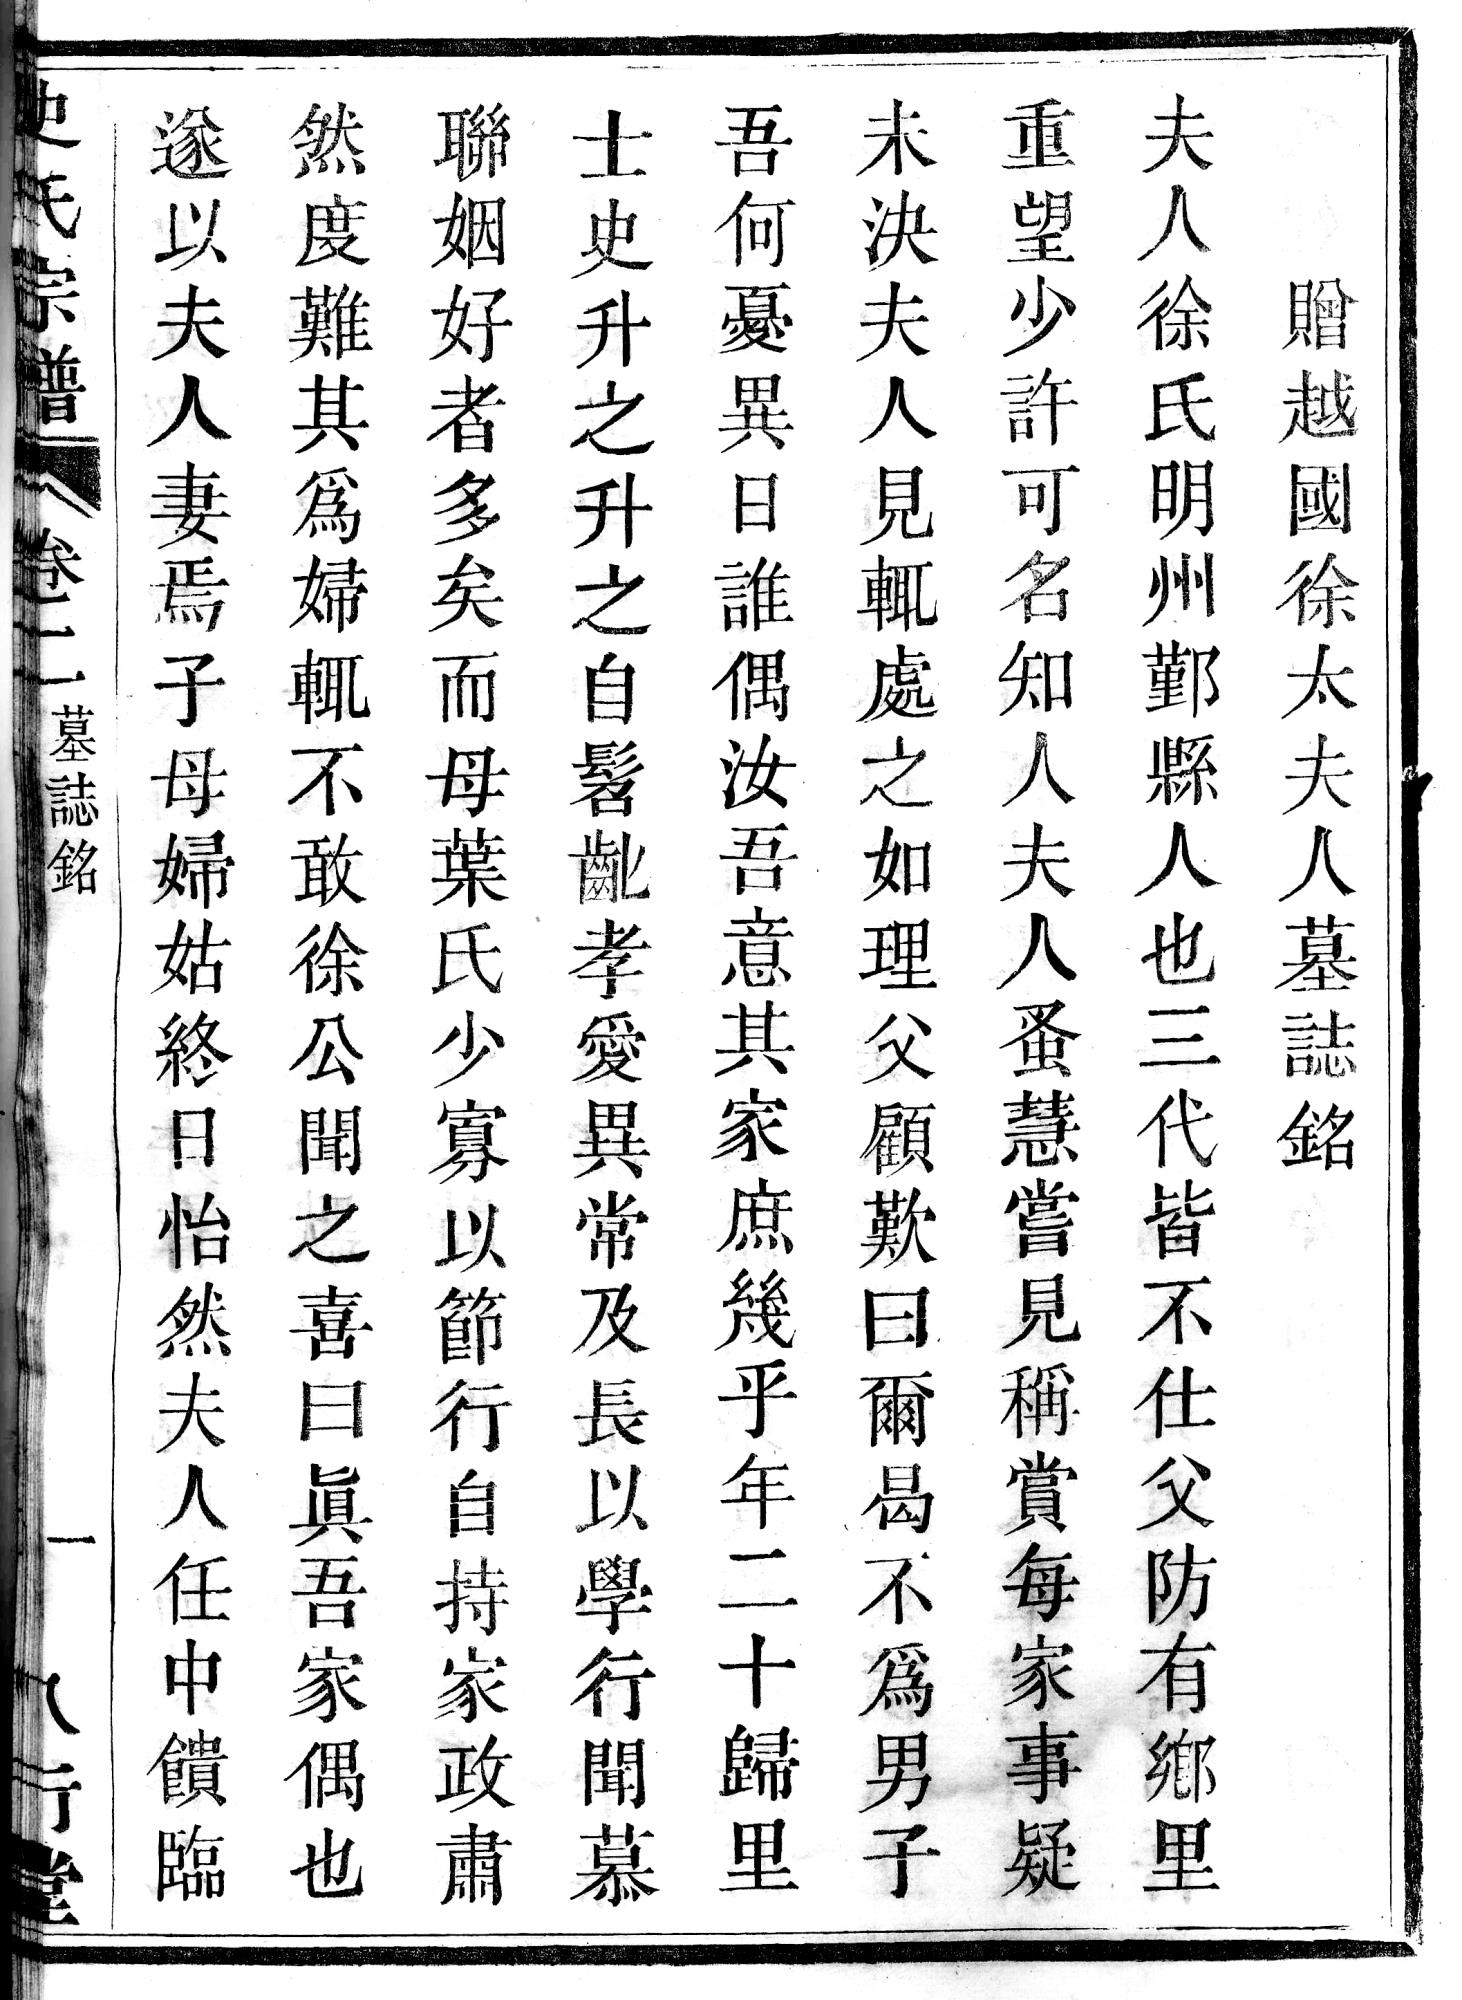 贈越國徐太夫人墓誌銘
夫人徐氏明州鄞縣人也三代皆不仕父防有鄉里
重望少許可名知人夫人蚤慧嘗見稱賞每家事疑
未決夫人見輒處之如理父顧歎曰爾曷不爲男子
吾何憂異日誰偶汝吾意其家庶幾乎年二十歸里
士史升之升之自髫齔孝愛異常及長以學行聞慕
聯姻好者多矣而母葉氏少寡以節行自持家政肅
然度難其爲婦輒不敢徐公聞之喜曰眞吾家偶也
遂以夫人妻焉子母婦姑終日怡然夫人任中饋臨
史氏宗譜 卷二 墓誌銘 一 八行堂